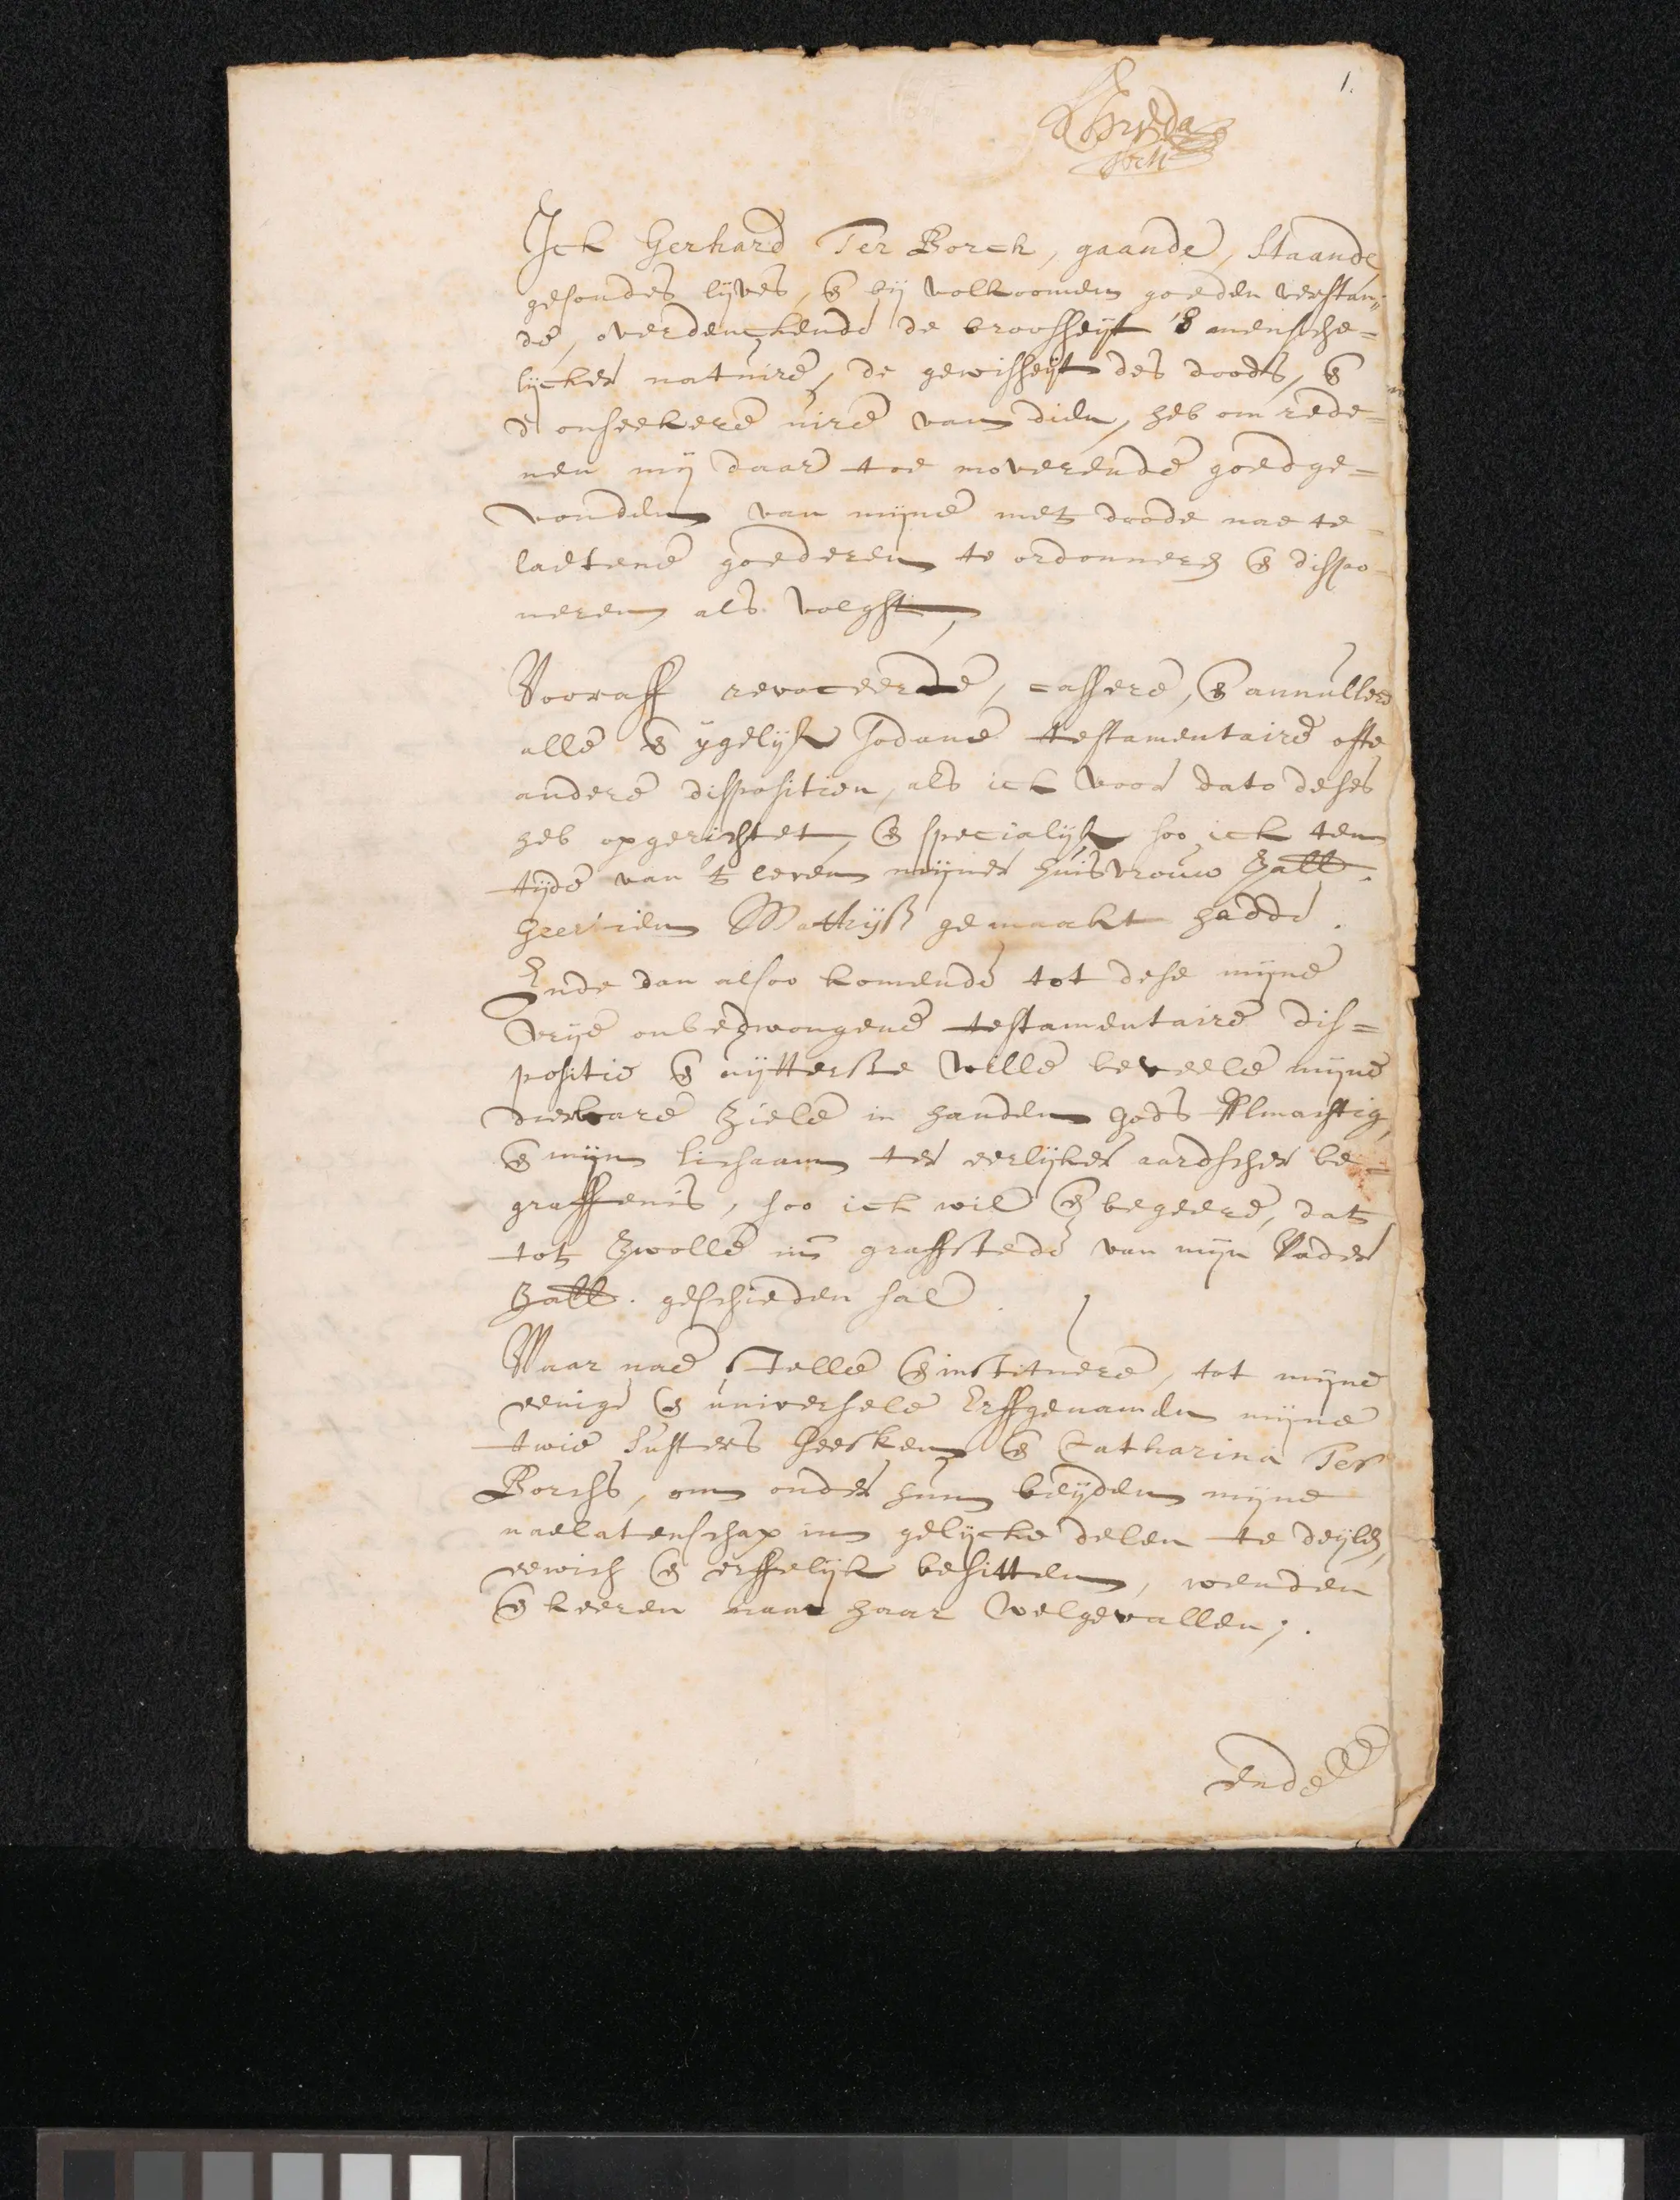 1.
Ick Gerhard Ter Borch, gaande, staande,
gesondes lijves, & bij volkoomen goeden verstan=
de, overdenckende de broosheijt 's mensche=
lijcker natuire, de gewisheijt des doods, &
d' onseekere uire van dien, heb om rede=
nen mij daar toe moverende goedge=
vonden van mijne met doode nae te
laetene goederen te ordonneren & dispo=
neren als volght,
Vooraff revoceerde, cassere, & annullere
alle & ygelijk sodane testamentaire ofte
andere dispositien, als ick voor dato deses
heb opgerichtet, & specialijk soo ick ten
tijde van 't leven mijner huisvrouw Zall.
Geertien Matthijß gemaakt hadde.
Ende dan alsoo komende tot dese mijne
vrije onbedwongene testamentaire dis=
positie & uijtterste wille beveele mijne
dierbare Ziele in handen Gods Almachtig,
& mijn lichaam ter eerlijker aardscher be=
graffenis, soo ick wil & begeere, dat
tot Zwolle int graffstede van mijn Vader
Zall. geschieden sal.
Waar nae stelle & institueere, tot mijne
eenige & universele Erffgenamen mijne
twie susters Geesken & Catharina Ter
Borchs, om onder hun beijden mijne
naelatenschap in gelijcke delen te deijlen,
eewich & erffelijk besitten, wenden
& keeren naar haar welgevallen;.
Ende